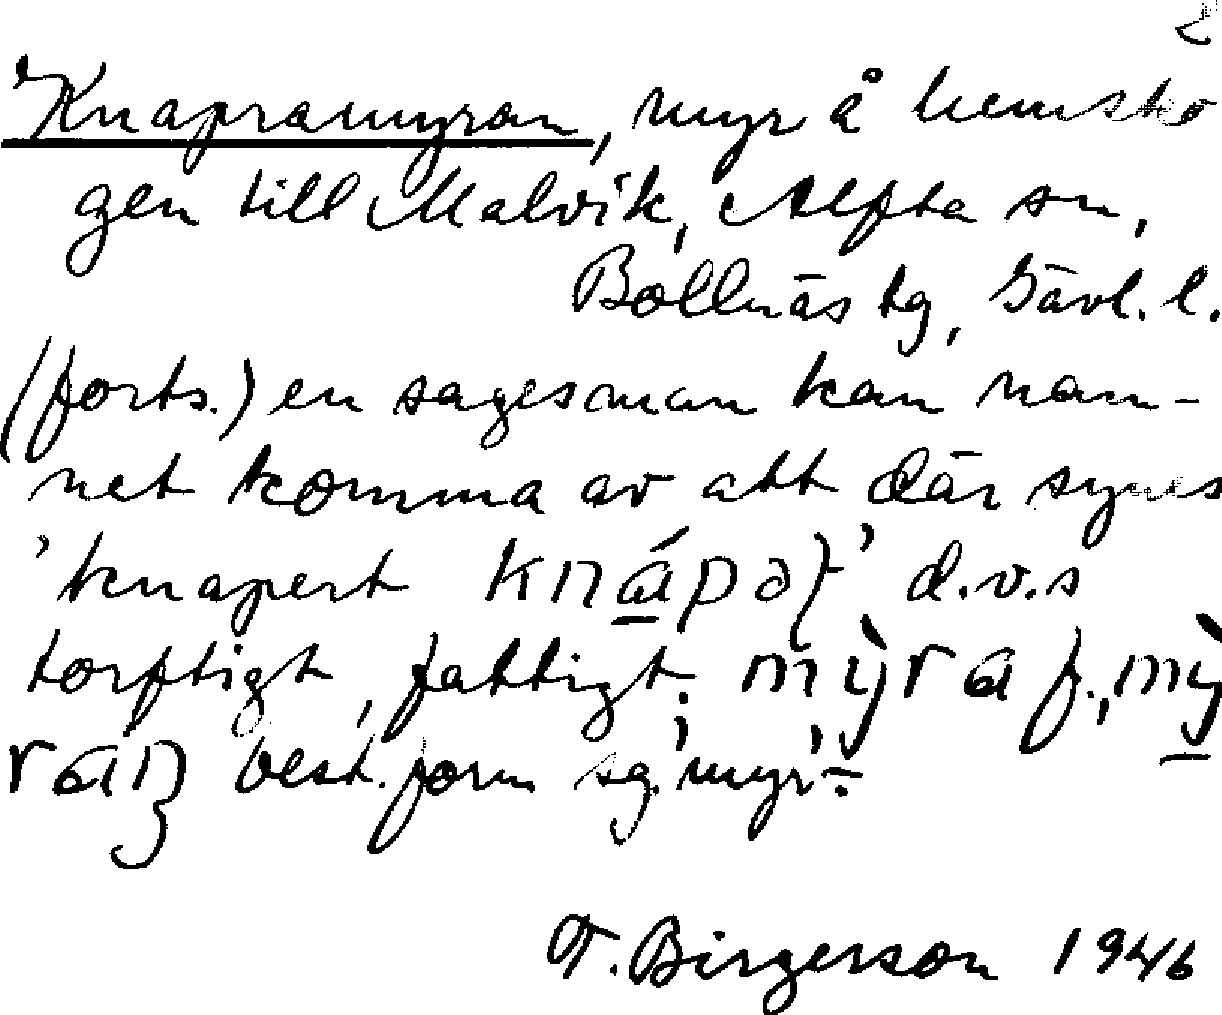 2
Knapramyran, myr å hemsko
gen till Malvik, Alfta sn,
Bollnäs tg, Gävl. l.
(forts.) en sagesman kan nam-
net komma av att där synes
'knapert knápət' d.v.s
torftigt, fattigt; mỳra f., mỳ
ran best. form sg. 'myr' ÷
T. Birgerson 1946